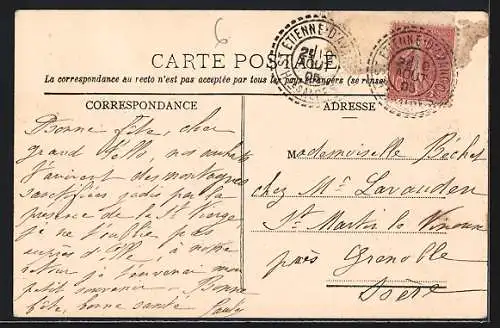 6
CARTE POSTALE
La correspondance au recto n'est pas acceptée par tous les pays étrangers (se rense
ST ETIENNE-D'
AOUT
05
ETIENNE-D'
AOUT
05
CORRESPONDANCE
ADRESSE
Bonne fête, cher
grand Vello, nos souhaits
t'arrivent des montagnes
sanctifiées jadis par la
présence de la Ste Vierge
je ne t'oublie pas
auprès d'Elle, à notre
retour je t'enverrai mon
petit souvenir — Bonne
fête, bonne santé
Mademoiselle Béchet
chez Mr Lavauden
St Martin le Vinoux
près Grenoble
Isère